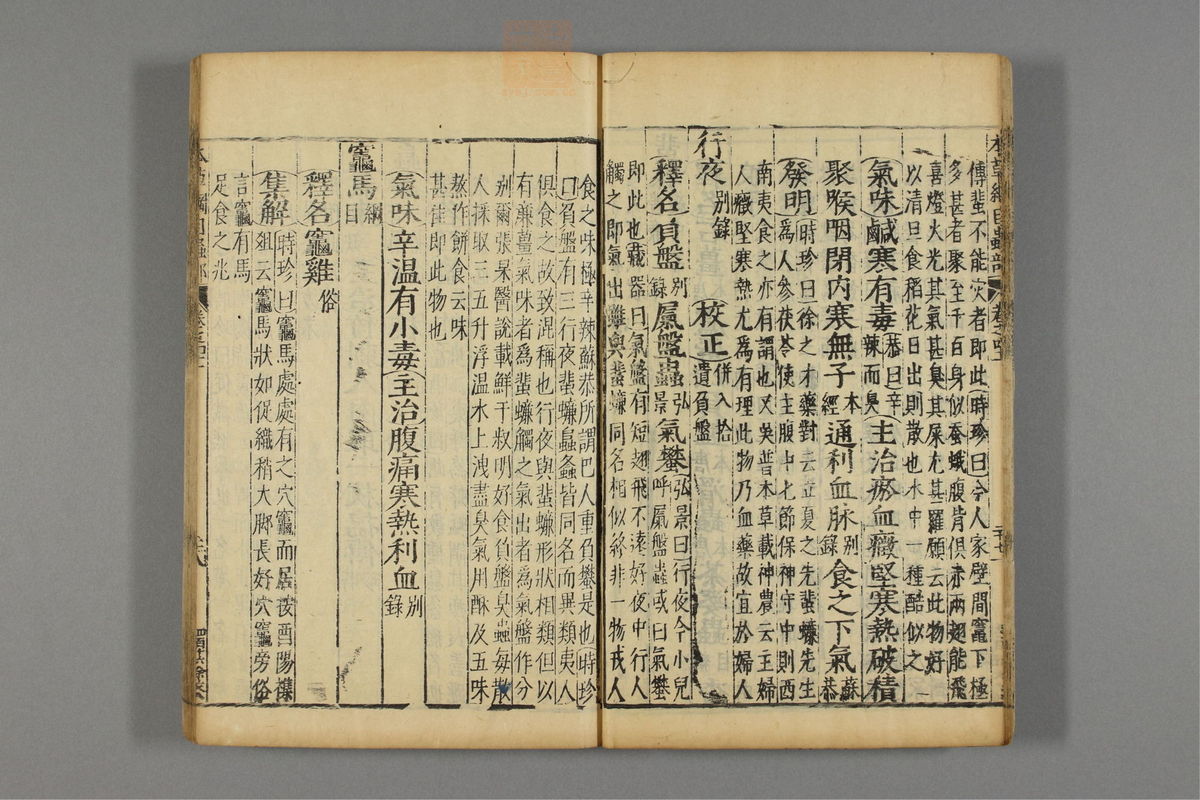 本草綱目蟲部
傳蜚不能灾者即此時珍曰今人家壁間竈下極
多甚者聚至千百身似蚕蛾腹背俱赤兩翅能飛
喜燈火光其氣甚臭其屎尤甚羅願云此物好
以清旦食稻花日出則散也水中一種酷似之
氣味鹹寒有毒恭曰辛辣而臭主治瘀血癥堅寒熱破積
聚喉咽閉内寒無子本經通利血脉別錄食之下氣蘇恭
發明時珍曰徐之才藥對云立夏之先蜚蠊先生
爲人參茯苓使主腹中七節保神守中則西
南夷食之亦有謂也又吳普本草載神農云主婦
人癥堅寒熱尤爲有理此物乃血藥故宜於婦人
行夜別錄校正併入拾遺負盤
釋名負盤別錄屓盤蟲弘景氣蠜弘景曰行夜今小兒呼屓盤蟲或曰氣蠜
即此也藏器曰氣盤有短翅飛不遠好夜中行人
觸之即氣出雖與蜚蠊同名相似終非一物戎人
食之味極辛辣蘇恭所謂巴人重負蠜是也時珍
曰負盤有三行夜蜚蠊䘀螽皆同名而異類夷人
俱食之故致混稱也行夜與蜚蠊形狀相類但以
有廉薑氣味者爲蜚蠊觸之氣出者爲氣盤作分
別爾張杲醫說載鮮于叔明好食負盤臭蟲每散
人採取三五升浮温水上洩盡臭氣用酥及五味
熬作餅食云味
甚佳即此物也
氣味辛温有小毒主治腹痛寒熱利血別錄
竈馬綱目
釋名竈雞俗
集解時珍曰竈馬處處有之穴竈而居按酉陽襍
俎云竈馬狀如促織稍大脚長好穴竈旁俗
言竈有馬
足食之兆